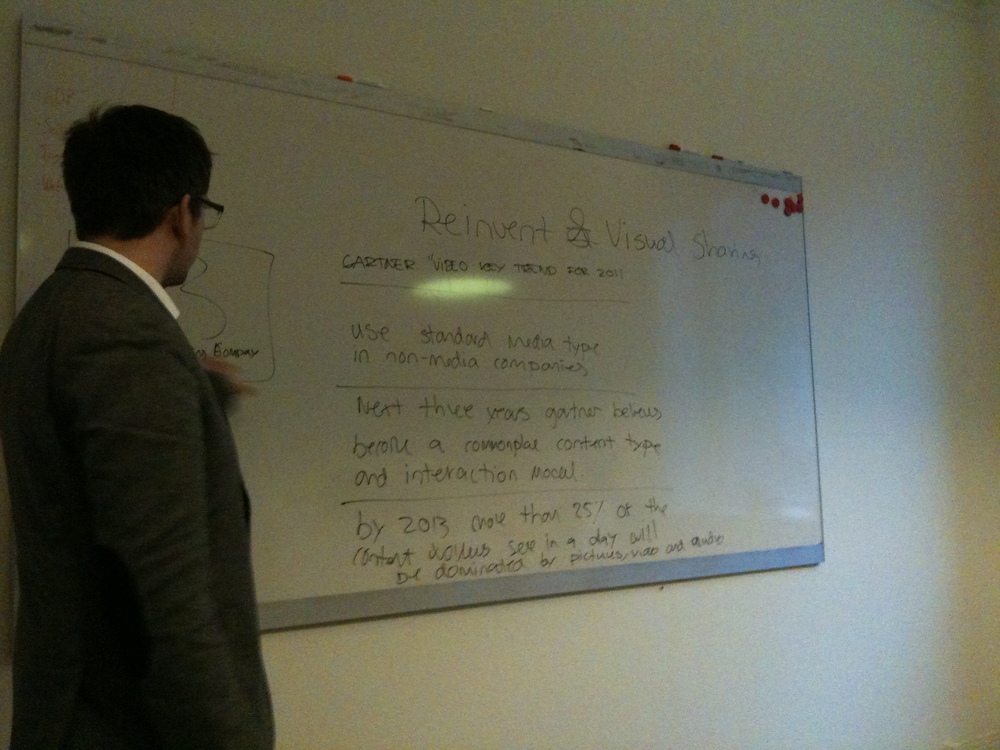 ADP
Reinvent & Visual Sharing
GARTNER "VIDEO KEY TREND FOR 2011
use standard media type
in non-media companies,
Next three years gartner believes
become a commonplae content type
and interaction model.
by 2013 more than 25% of the
content workers see in a day will
be dominated by pictures, video and audio